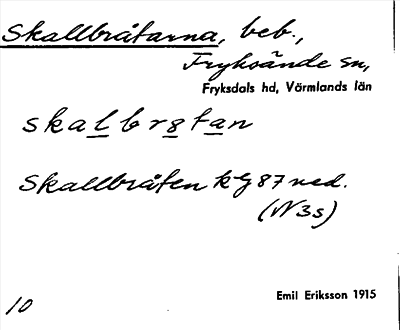 Skallbråtarna, beb.,
Fryksände sn,
Fryksdals hd, Värmlands län
skalbr8tan
Skallbråten kg 87 ned.
(N3s)
Emil Eriksson 1915
10